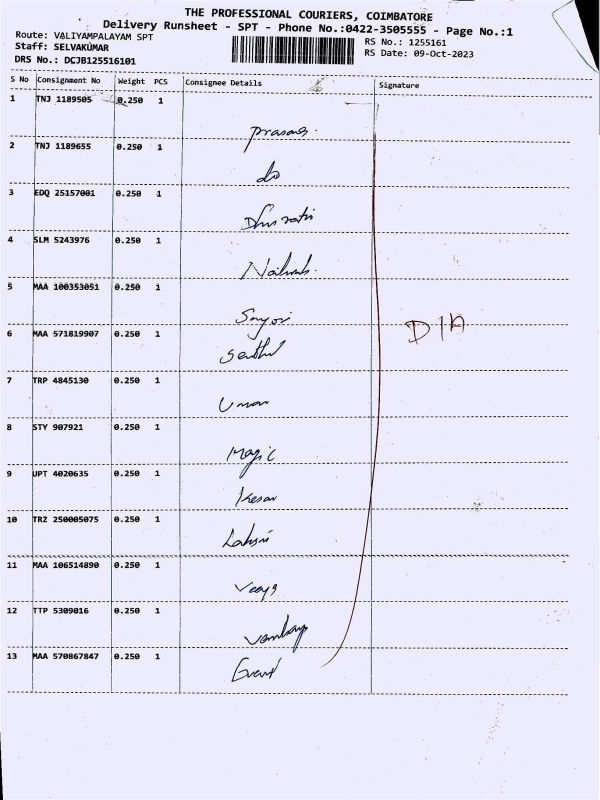 THE PROFESSIONAL COURIERS, COIMBATORE
Delivery Runsheet - SPT - Phone No.:0422-3505555 - Page No.:1
Route: VALIYAMPALAYAM SPT
RS No.: 1255161
Staff: SELVAKUMAR
RS Date: 09-Oct-2023
DRS No.: DCJB125516101
S No Consignment No Weight PCS Consignee Details Signature
1 TNJ 1189505 0.250 1
2 TNJ 1189655 0.250 1
do
3 EDQ 25157001 0.250 1
4 SLM 5243976 0.250 1
5 MAA 100353051 0.250 1
6 MAA 571819907 0.250 1
Senthil
7 TRP 4845130 0.250 1
Uman
8 STY 907921 0.250 1
Magic
9 UPT 4020635 0.250 1
Kesav
10 TRZ 250005075 0.250 1
11 MAA 106514890 0.250 1
12 TTP 5309016 0.250 1
13 MAA 570867847 0.250 1
Event